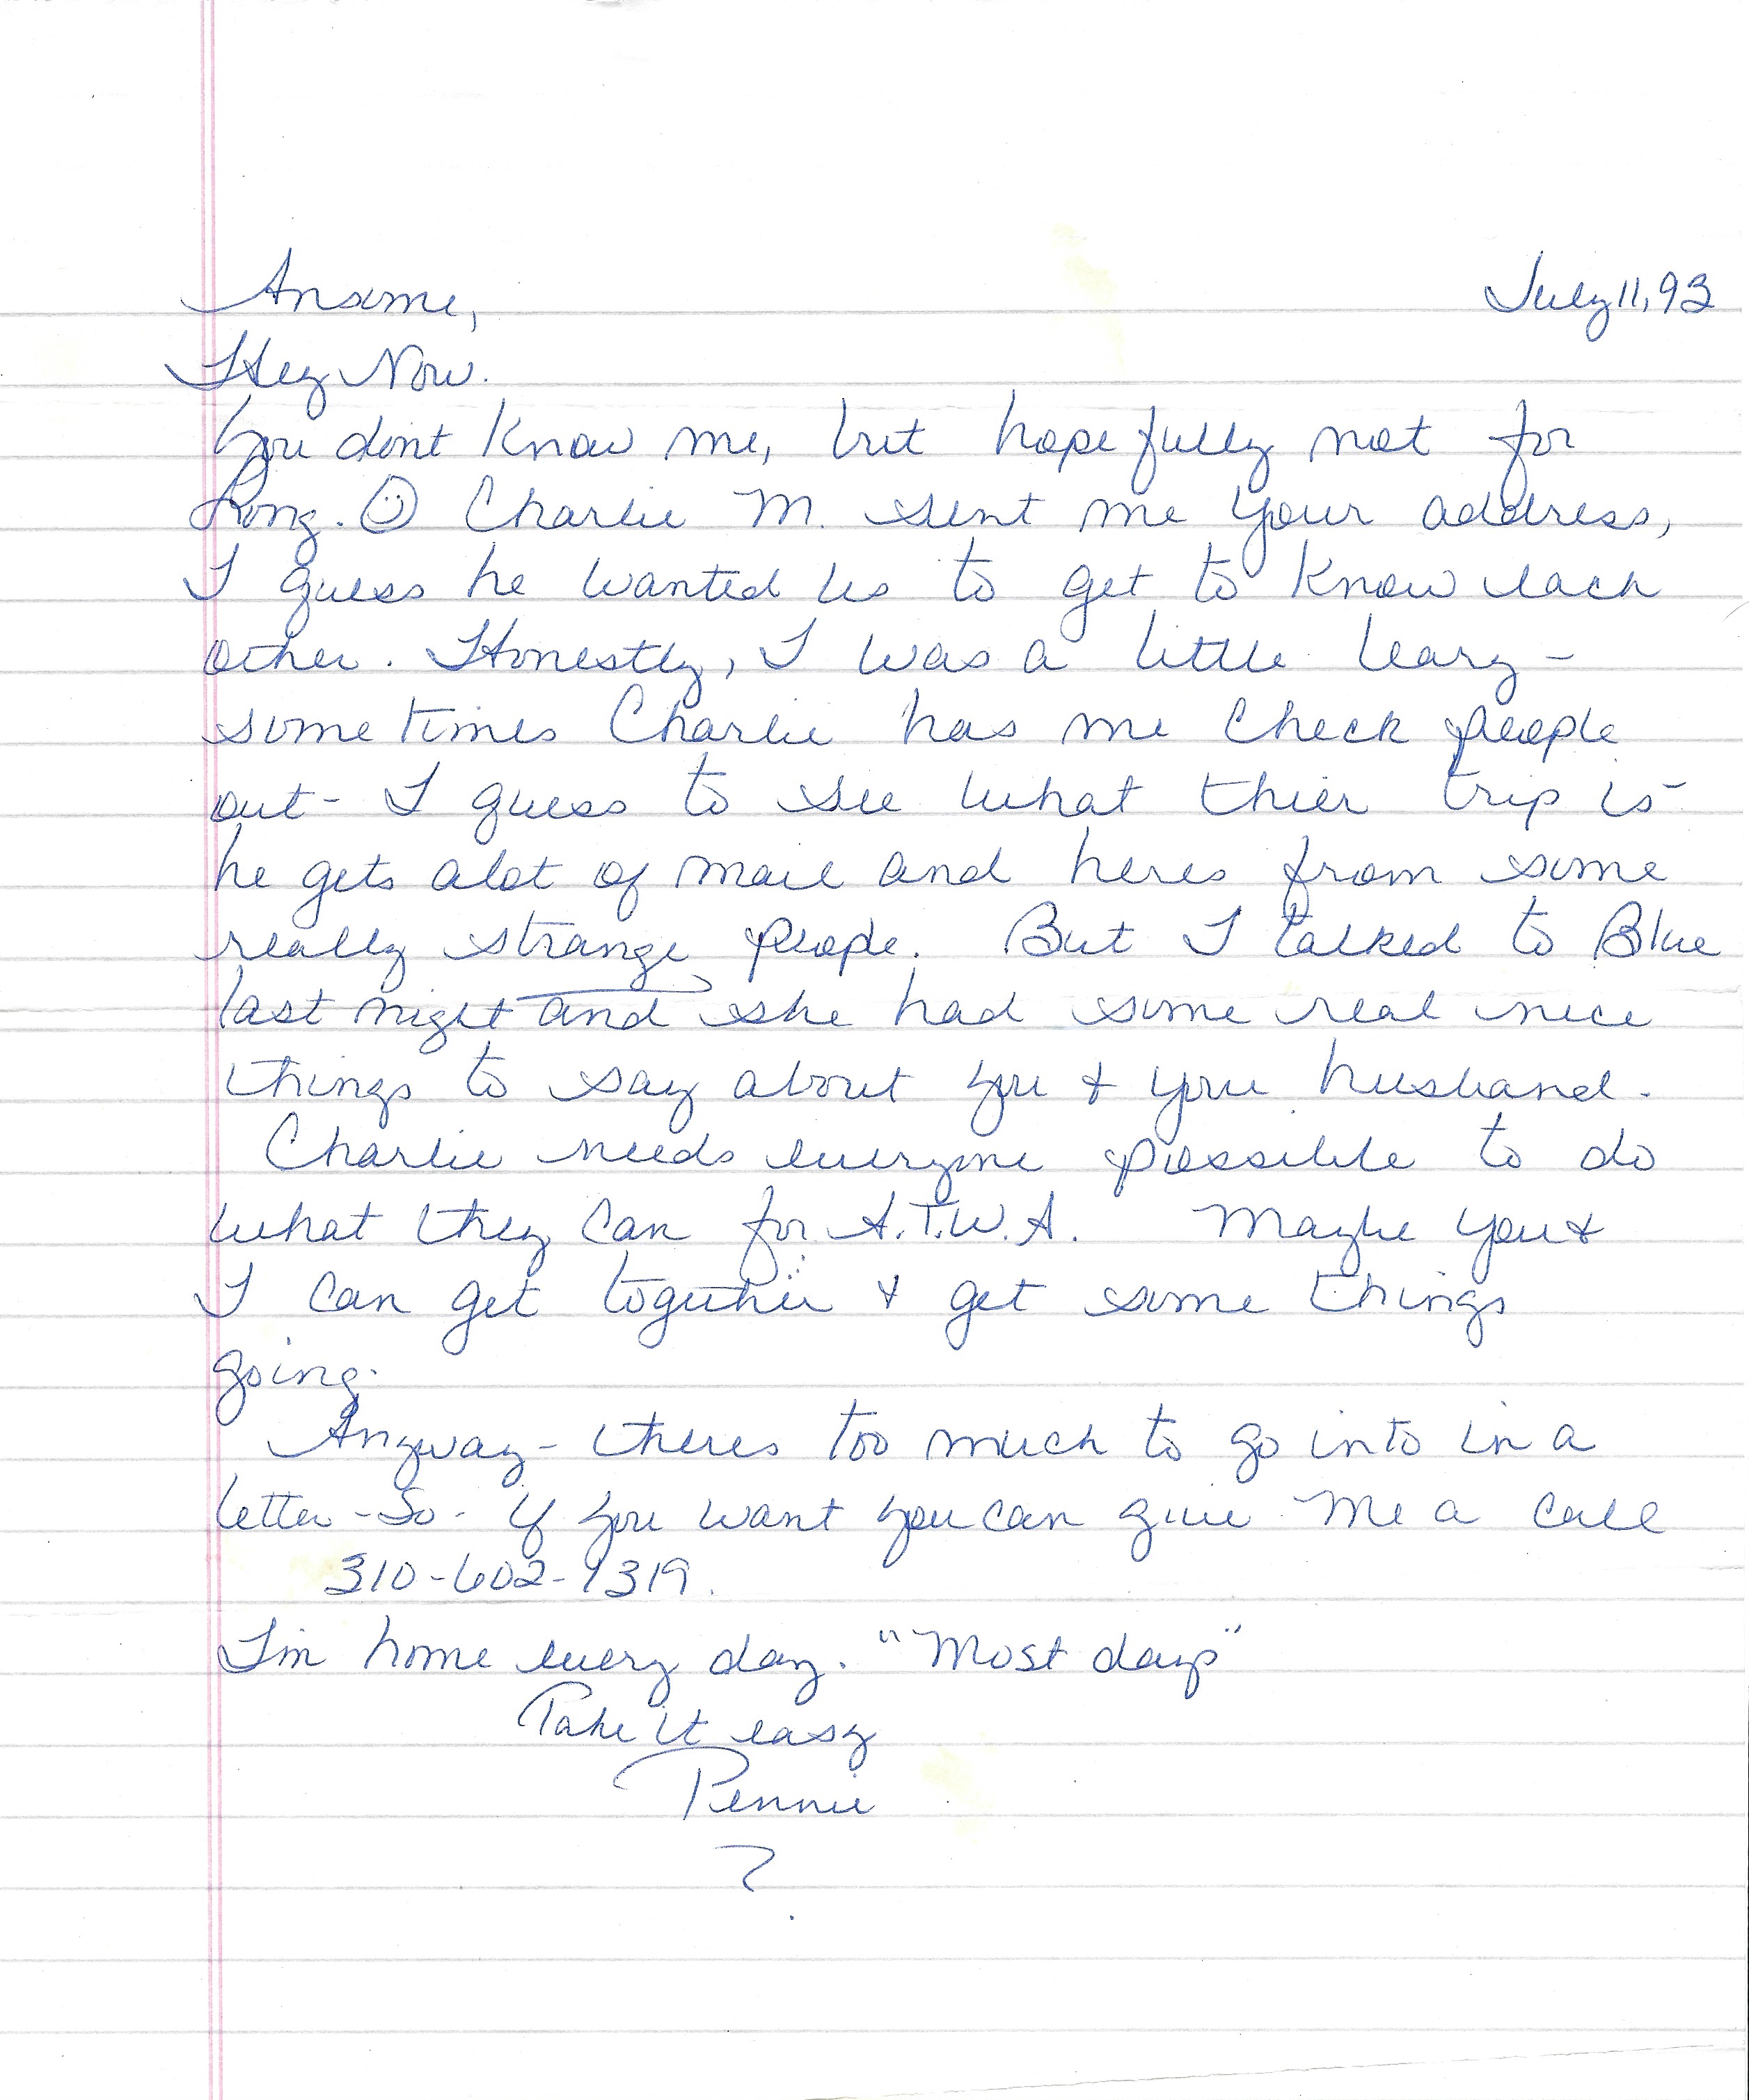 Anxome, July 11, 93
Hey Now.
You dont know me, but hopefully not for
Long. ☺ Charlie M. sent me your address,
I guess he wanted us to get to know each
other. Honestly, I was a little leary -
sometimes Charlie has me check people
out - I guess to see what thier trip is -
he gets alot of mail and heres from some
really strange people. But I talked to Blue
last night and she had some real nice
things to say about you & your husband.
Charlie needs everyone possible to do
what they can for A.T.W.A. Maybe you &
I can get together & get some things
going.
Anyway - theres too much to go into in a
letter - So - if you want you can give me a call
310-602-1319.
I'm home every day. "Most days"
Take it easy
Pennie
?